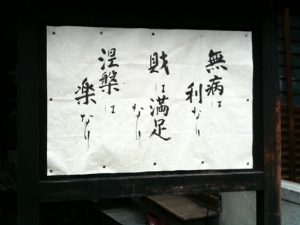 無病は
利なり
財は満足
なり
涅槃は
楽なり